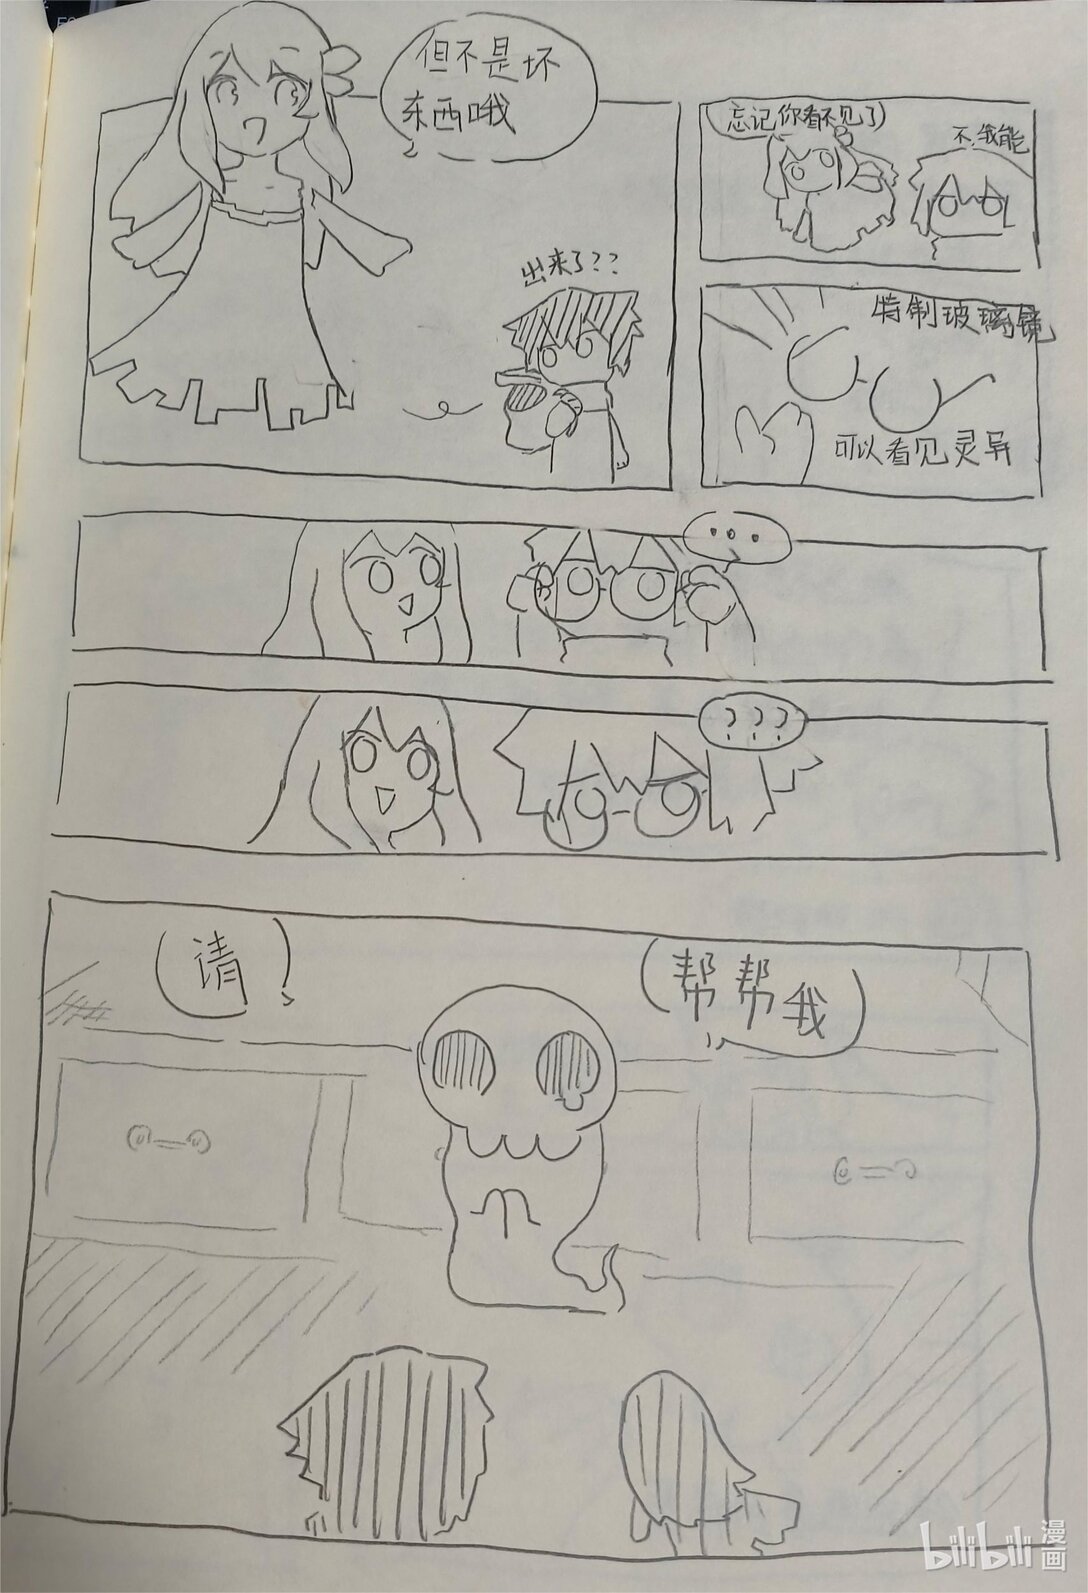 但不是坏
东西哦
出来了??
忘记你看不见了
不,我能
特制玻璃镜
可以看见灵异
...
???
请
帮帮我
bilibili
漫画